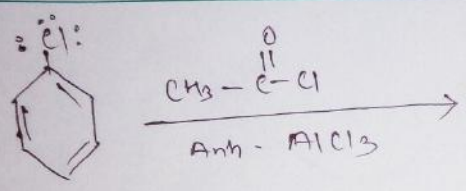 :Cl:
O
||
CH3 - C - Cl
Anh - AlCl3